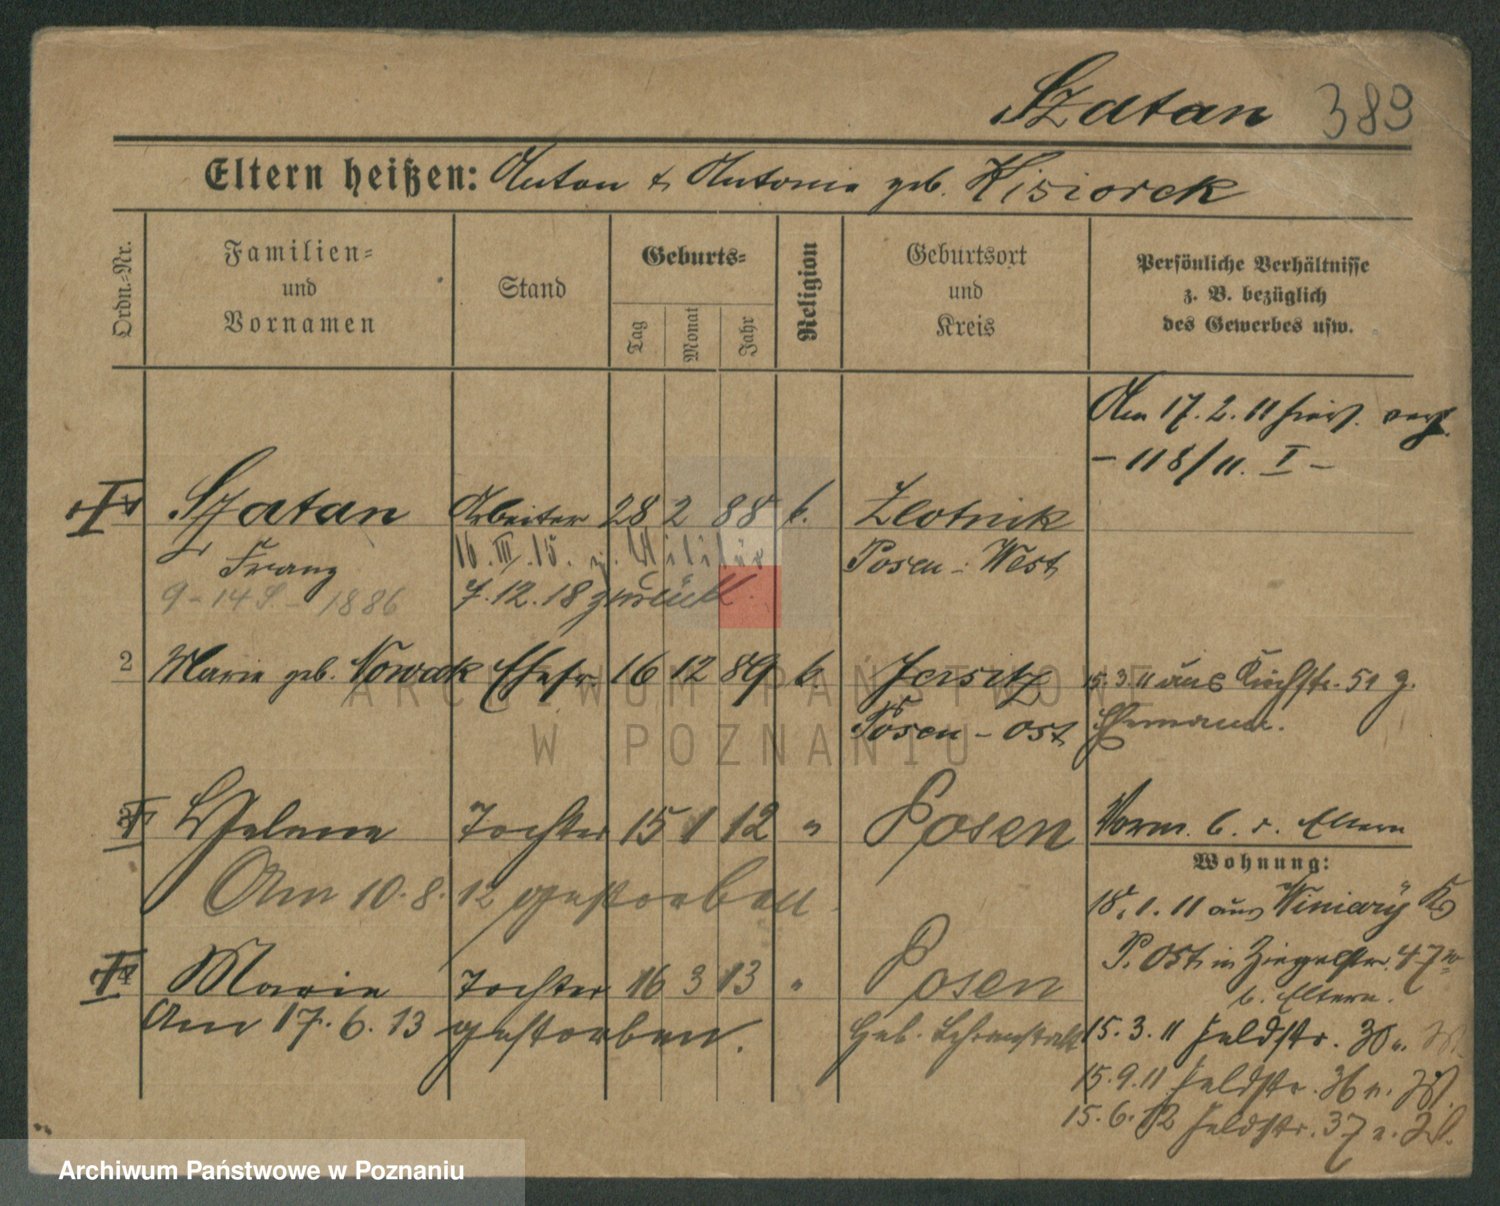 Szatan 389
Eltern heißen: Anton & Antonie geb. Kisiorek
Ordn.-Nr.
Familien-
und
Vornamen
Stand
Geburts-
Tag
Monat
Jahr
Religion
Geburtsort
und
Kreis
Persönliche Verhältnisse
z. B. bezüglich
des Gewerbes usw.
Am 17. 2. 11
- 118/11. I -
1 Szatan Arbeiter 28 2 88 k. Zlotnik
Franz 16. III. 15. z. Militär Posen-West
9-14 S. - 1886 7. 12. 18 zurück
2 Marie geb. Nowak Ehefr. 16 12 89 k. Jersitz 15. 3. 11 aus 51
Posen-Ost
3 Helene Tochter 15 1 12 " Posen Vorm. b. d. Eltern
Am 10. 8. 12 gestorben
Wohnung:
18. 1. 11 aus Winiary Kr
P. Ost in Ziegelstr. 47
b. Eltern.
4 Marie Tochter 16 3 13 " Posen
Am 17. 6. 13 gestorben. Geb. Lehranstalt
15. 3. 11 Feldstr. 30
15. 9. 11 Feldstr. 36
15. 6. 12 Feldstr. 37
ARCHIWUM PAŃSTWOWE
W POZNANIU
Archiwum Państwowe w Poznaniu